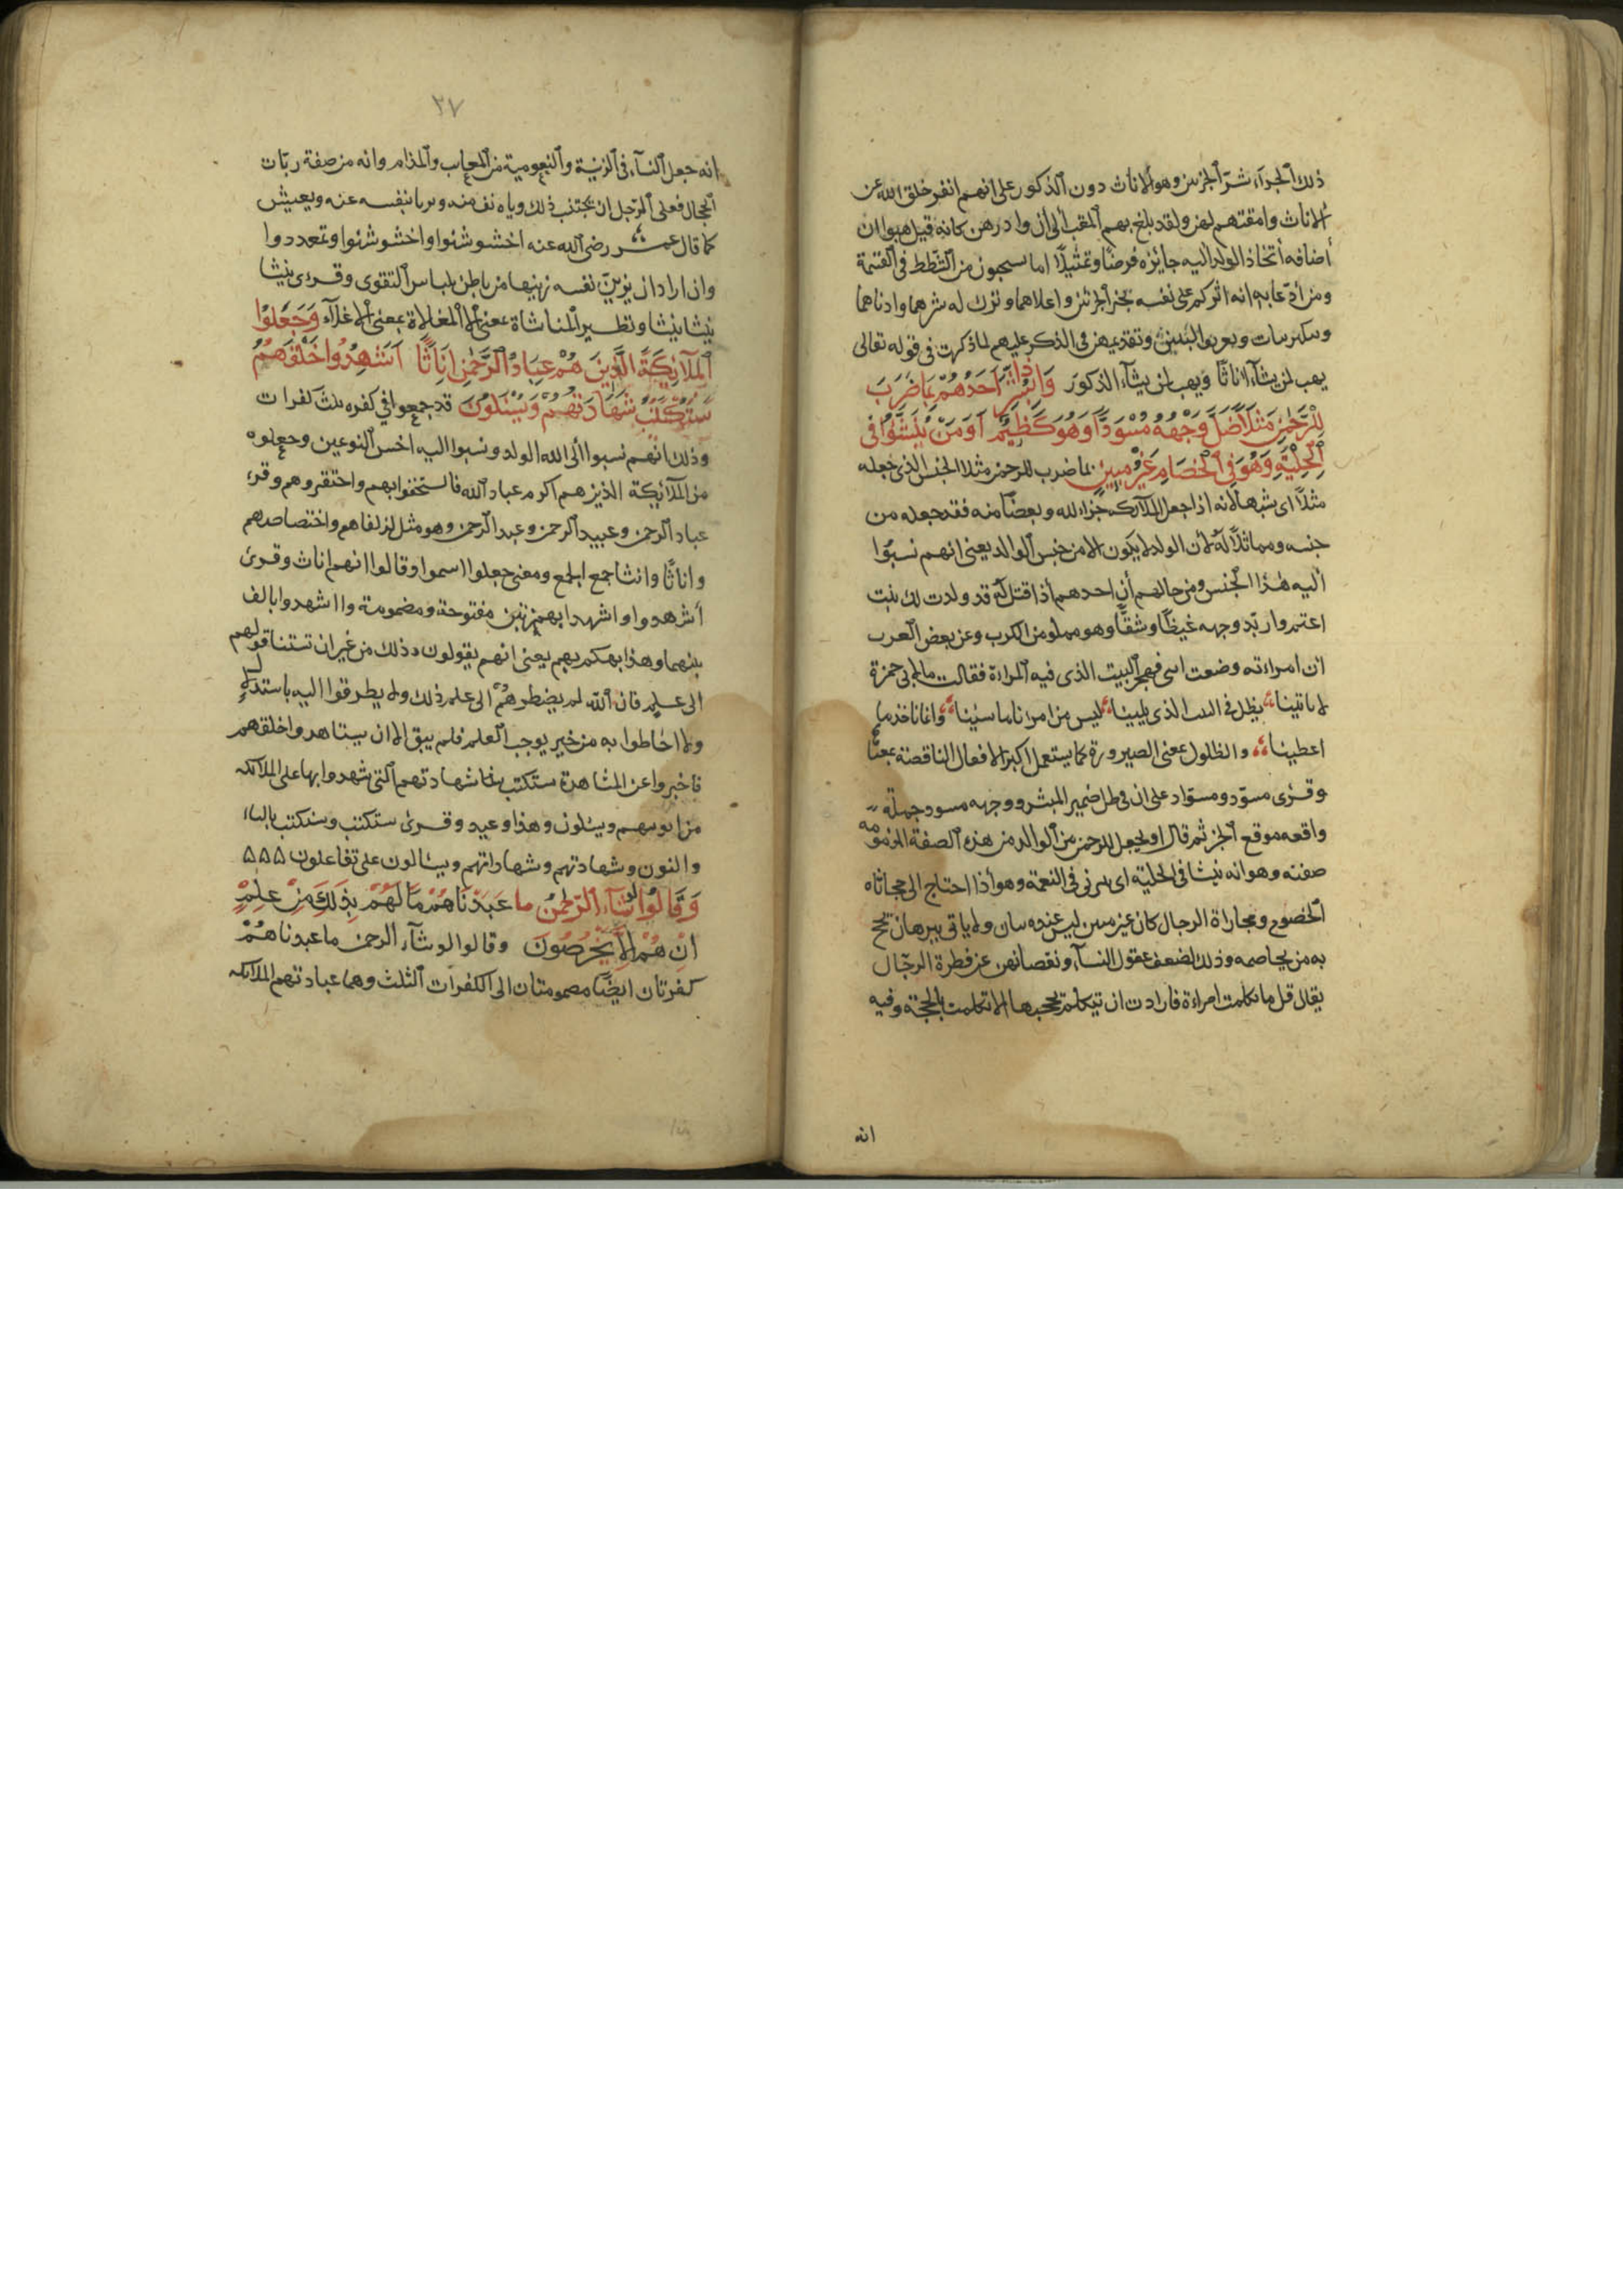 ذلك الجزاء شر الجزئين وهو الاناث دون الذكور على انهم انفر خلق الله عن
الاناث وامقتهم لهن ولقد بلغ بهم المقت الى ان وادوهن كانه قيل هبوا ان
أضافة أتخاذ الولد اليه جايزه فرضًا وتمثيلًا اما تستحيون من الشطط في القسمة
ومن ادعائكم انه اثركم على نفسه بخير الجزئين واعلاهما وترك له شرهما وادناهما
وتنكير بنات وتعريف البنين وتقديمهن في الذكر عليهم لما ذكرت في قوله تعالى
يهب لمن يشآء اناثًا ويهب لمن يشآء الذكور وَاِذَا بُشِّرَ اَحَدُهُمْ بِمَا ضَرَبَ
لِلرَّحْمٰنِ مَثَلًا ظَلَّ وَجْهُهُ مُسْوَدًّا وَهُوَ كَظِيمٌ اَوَمَنْ يُنَشَّؤُا فِي
الْحِلْيَةِ وَهُوَ فِي الْخِصَامِ غَيْرُ مُبِينٍ بما ضرب للرحمن مثلا الجنس الذي جعله
مثلًا اى شبها لانه اذا جعل الملآئكة جزاء لله وبعضًا منه فقد جعله من
جنسه ومماثلًا له لأن الولد لا يكون الا من جنس الوالد يعنى انهم نسبوا
أليه هذا الجنس ومن حالهم أن احدهم أذا قيل له قد ولدت لك بنت
اغتم واربد وجهه غيظًا وهو مملو من الكرب وعن بعض العرب
ان امراءته وضعت انثى فهجر البيت الذى فيه المراءة فقالت ما لابى حمزة
لا ياتينا يظل فى البيت الذى يلينا ليس من امرنا ما شينا وانما ناخذ ما
اعطينا والظلول بمعنى الصيرورة كما يستعمل اكثر الافعال الناقصة بمعنا
وقرى مسود ومسواد على ان فى ظل ضمير المبشر ووجهه مسود جملة
واقعه موقع الخبر ثم قال او يجعل للرحمن من الوالد من هذه الصفة المذمومه
صفته وهو انه ينشا فى الحلية اى يربى فى النعمة وهو أذا احتاج الى مجاثاه
الخصوم ومجاراة الرجال كان غير مبين ليس عنده بيان ولا ياتى ببرهان يحج
به من يخاصمه وذلك لضعف عقول النسآء ونقصانهن عن فطرة الرجال
يقال قل ما تكلمت امراءة فارادت ان تتكلم بحجتها الا تكلمت بالحجة وفيه
انه
٢٧
انه جعل النشآء فى الزينة والنعومية من المعاىب والمذام وانه من صفة ربات
الحجال فعلى الرجل ان يجتنب ذلك ويانف منه ويربا بنفسه عنه ويعيش
كما قال عمر رضى الله عنه اخشوشنوا واخشوشبوا وتمعددوا
وان اراد ان يزين نفسه زينها من باطن بلباس التقوى وقرى ينشا
ينشا ينشا ونظير المناشاة بمعنى المغالاة بمعنى الاغلآء وَجَعَلُوا
الْمَلآئِكَةَ الَّذِينَ هُمْ عِبَادُ الرَّحْمٰنِ اِنَاثًا اَشَهِدُوا خَلْقَهُمْ
سَتُكْتَبُ شَهَادَتُهُمْ وَيُسْئَلُونَ قد جمعوا في كفره ثلث كفرات
وذلك انهم نسبوا ألى الله الولد ونسبوا اليه اخس النوعين وجعلوه
من الملآئكة الذين هم اكرم عباد الله فاستخفوا بهم واحتقروهم وقرء
عباد الرحمن وعبيد الرحمن وعبد الرحمن وهو مثل لزلفاهم واختصاصهم
واناثًا وانثا جمع الجمع ومعنى جعلوا اسموا وقالوا انهم اناث وقرئ
أشهدوا وااشهدوا بهمزتين مفتوحة ومضمومة وااشهدوا بالف
بينهما وهذا تهكم بهم يعنى انهم يقولون ذلك من غير ان تستنا قولهم
الى علم فان الله لم يضطرهم الى علم ذلك ولا يطرقوا اليه باستدلال
ولا احاطوا به من خبر يوجب العلم فلم يبق الا ان يشاهدوا خلقهم
فاخبروا عن المشاهدة ستكتب شهادتهم التى شهدوا بها على الملائكه
ويسئلون وهذا وعيد وقرى ستكتب وسنكتب بالياء
والنون وشهادتهم وشهاداتهم ويسالون على تفاعلون ۵۵۵
وَقَالُوا لَوْ شَآءَ الرَّحْمٰنُ ما عَبَدْنَاهُمْ مَا لَهُمْ بِذٰلِكَ مِنْ عِلْمٍ
اِنْ هُمْ اِلَّا يَخْرُصُونَ وقالوا لو شآء الرحمن ما عبدناهم
كفرتان ايضًا مضمومتان الى الكفرات الثلث وهما عبادتهم الملائكه